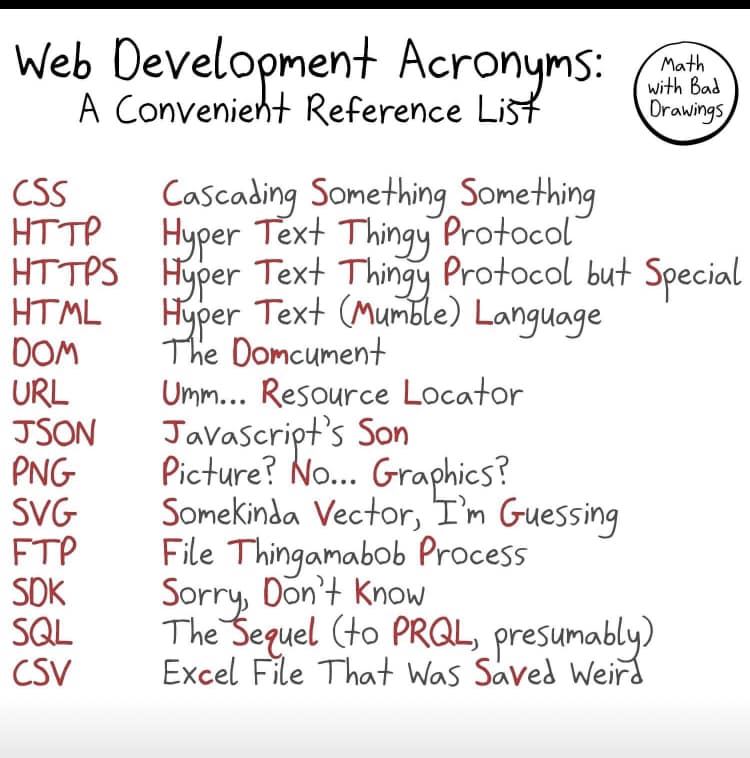 Web Development Acronyms:
A Convenient Reference List
Math
with Bad
Drawings
CSS Cascading Something Something
HTTP Hyper Text Thingy Protocol
HTTPS Hyper Text Thingy Protocol but Special
HTML Hyper Text (Mumble) Language
DOM The Domcument
URL Umm... Resource Locator
JSON Javascript's Son
PNG Picture? No... Graphics?
SVG Somekinda Vector, I'm Guessing
FTP File Thingamabob Process
SDK Sorry, Don't Know
SQL The Sequel (to PRQL, presumably)
CSV Excel File That Was Saved Weird